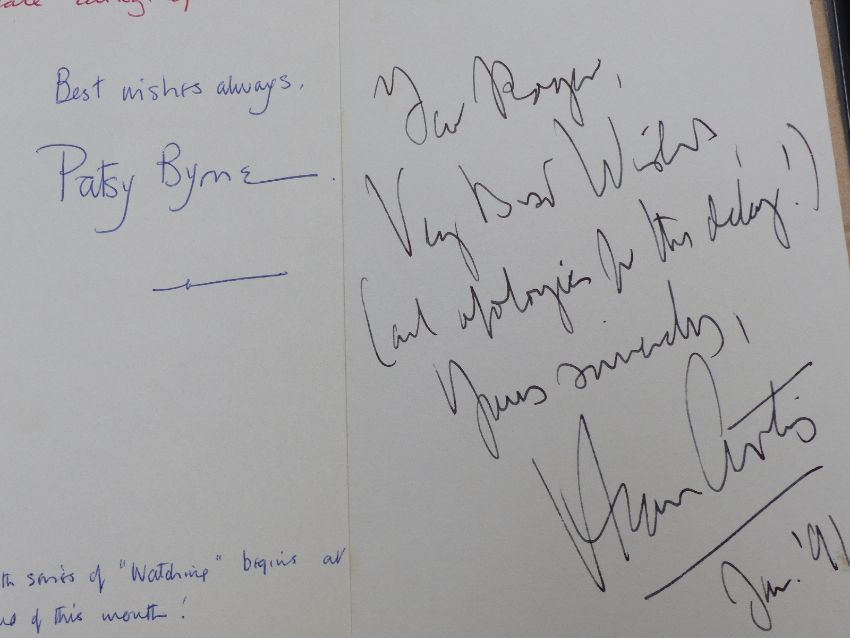 Best wishes always.
Patsy Byrne.
th series of "Watching" begins at
of this month!
Dear Roger,
Very Best Wishes,
(and apologies for this delay!)
Yours sincerely,
Curtis
Jan. '91